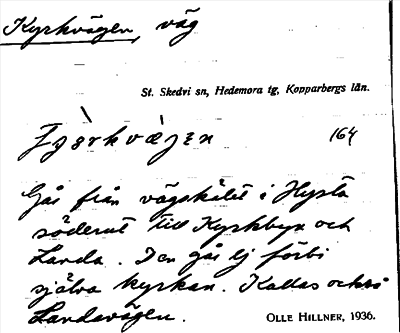 Kyrkvägen, väg
St. Skedvi sn, Hedemora tg, Kopparbergs län.
164
Går från vägskälet i Hysta
söderut till Kyrkbyn och
Landa. Den går ej förbi
själva kyrkan. Kallas också
Landavägen.
OLLE HILLNER, 1936.